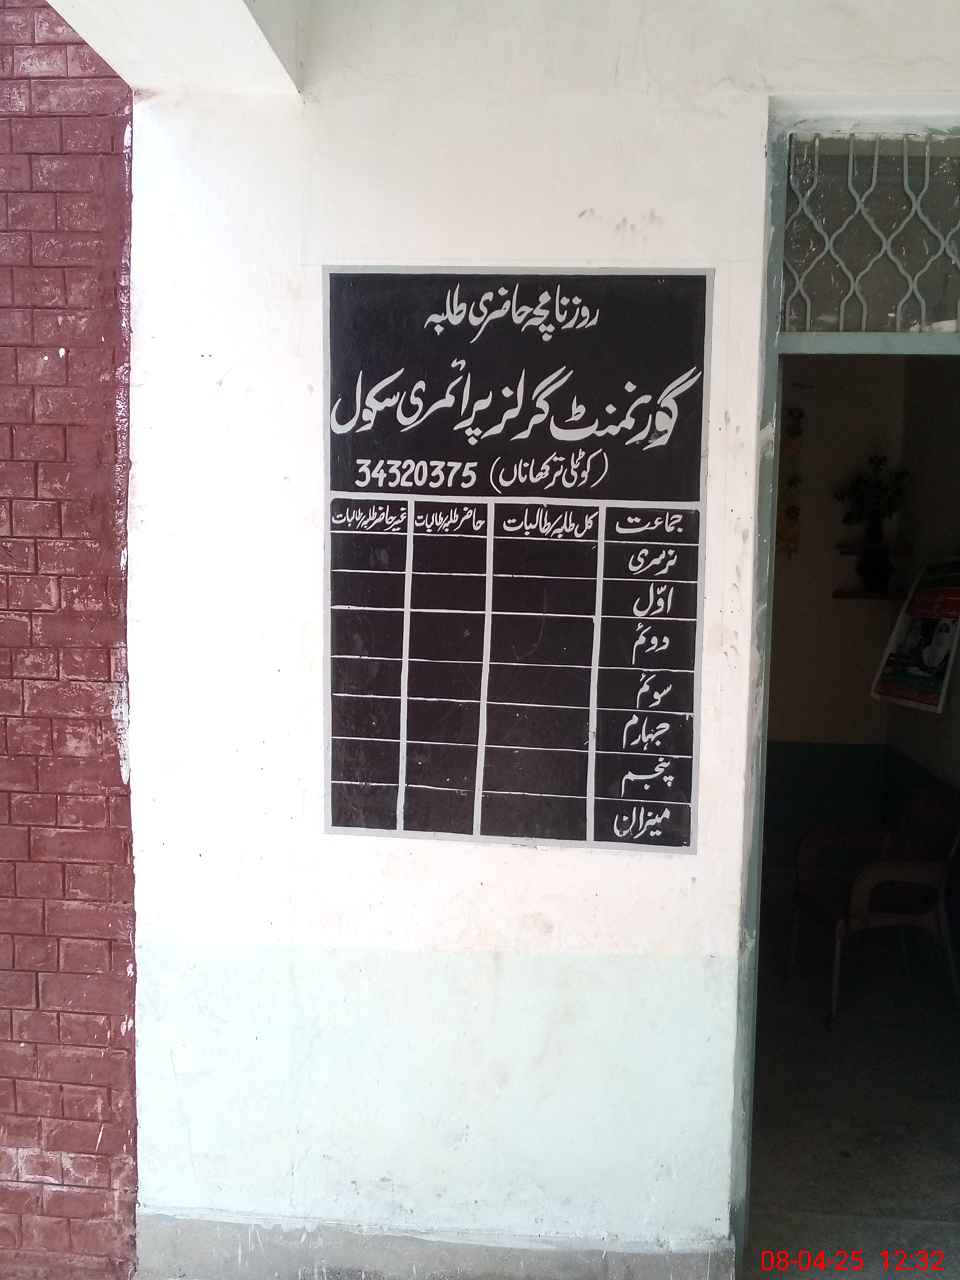 روزنامچہ حاضری طلبہ
گورنمنٹ گرلز پرائمری سکول
(کوٹلی ترکھاناں) 34320375
جماعت کل طلبہ/طالبات حاضر طلبہ/طالبات غیر حاضر طلبہ/طالبات
نرسری
اوّل
دوئم
سوئم
چہارم
پنجم
میزان
08-04-25 12:32